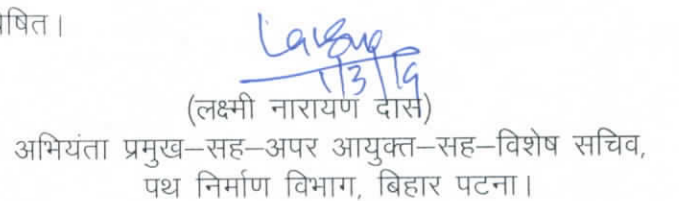 षित।
1/3/19
(लक्ष्मी नारायण दास)
अभियंता प्रमुख–सह–अपर आयुक्त–सह–विशेष सचिव,
पथ निर्माण विभाग, बिहार पटना।